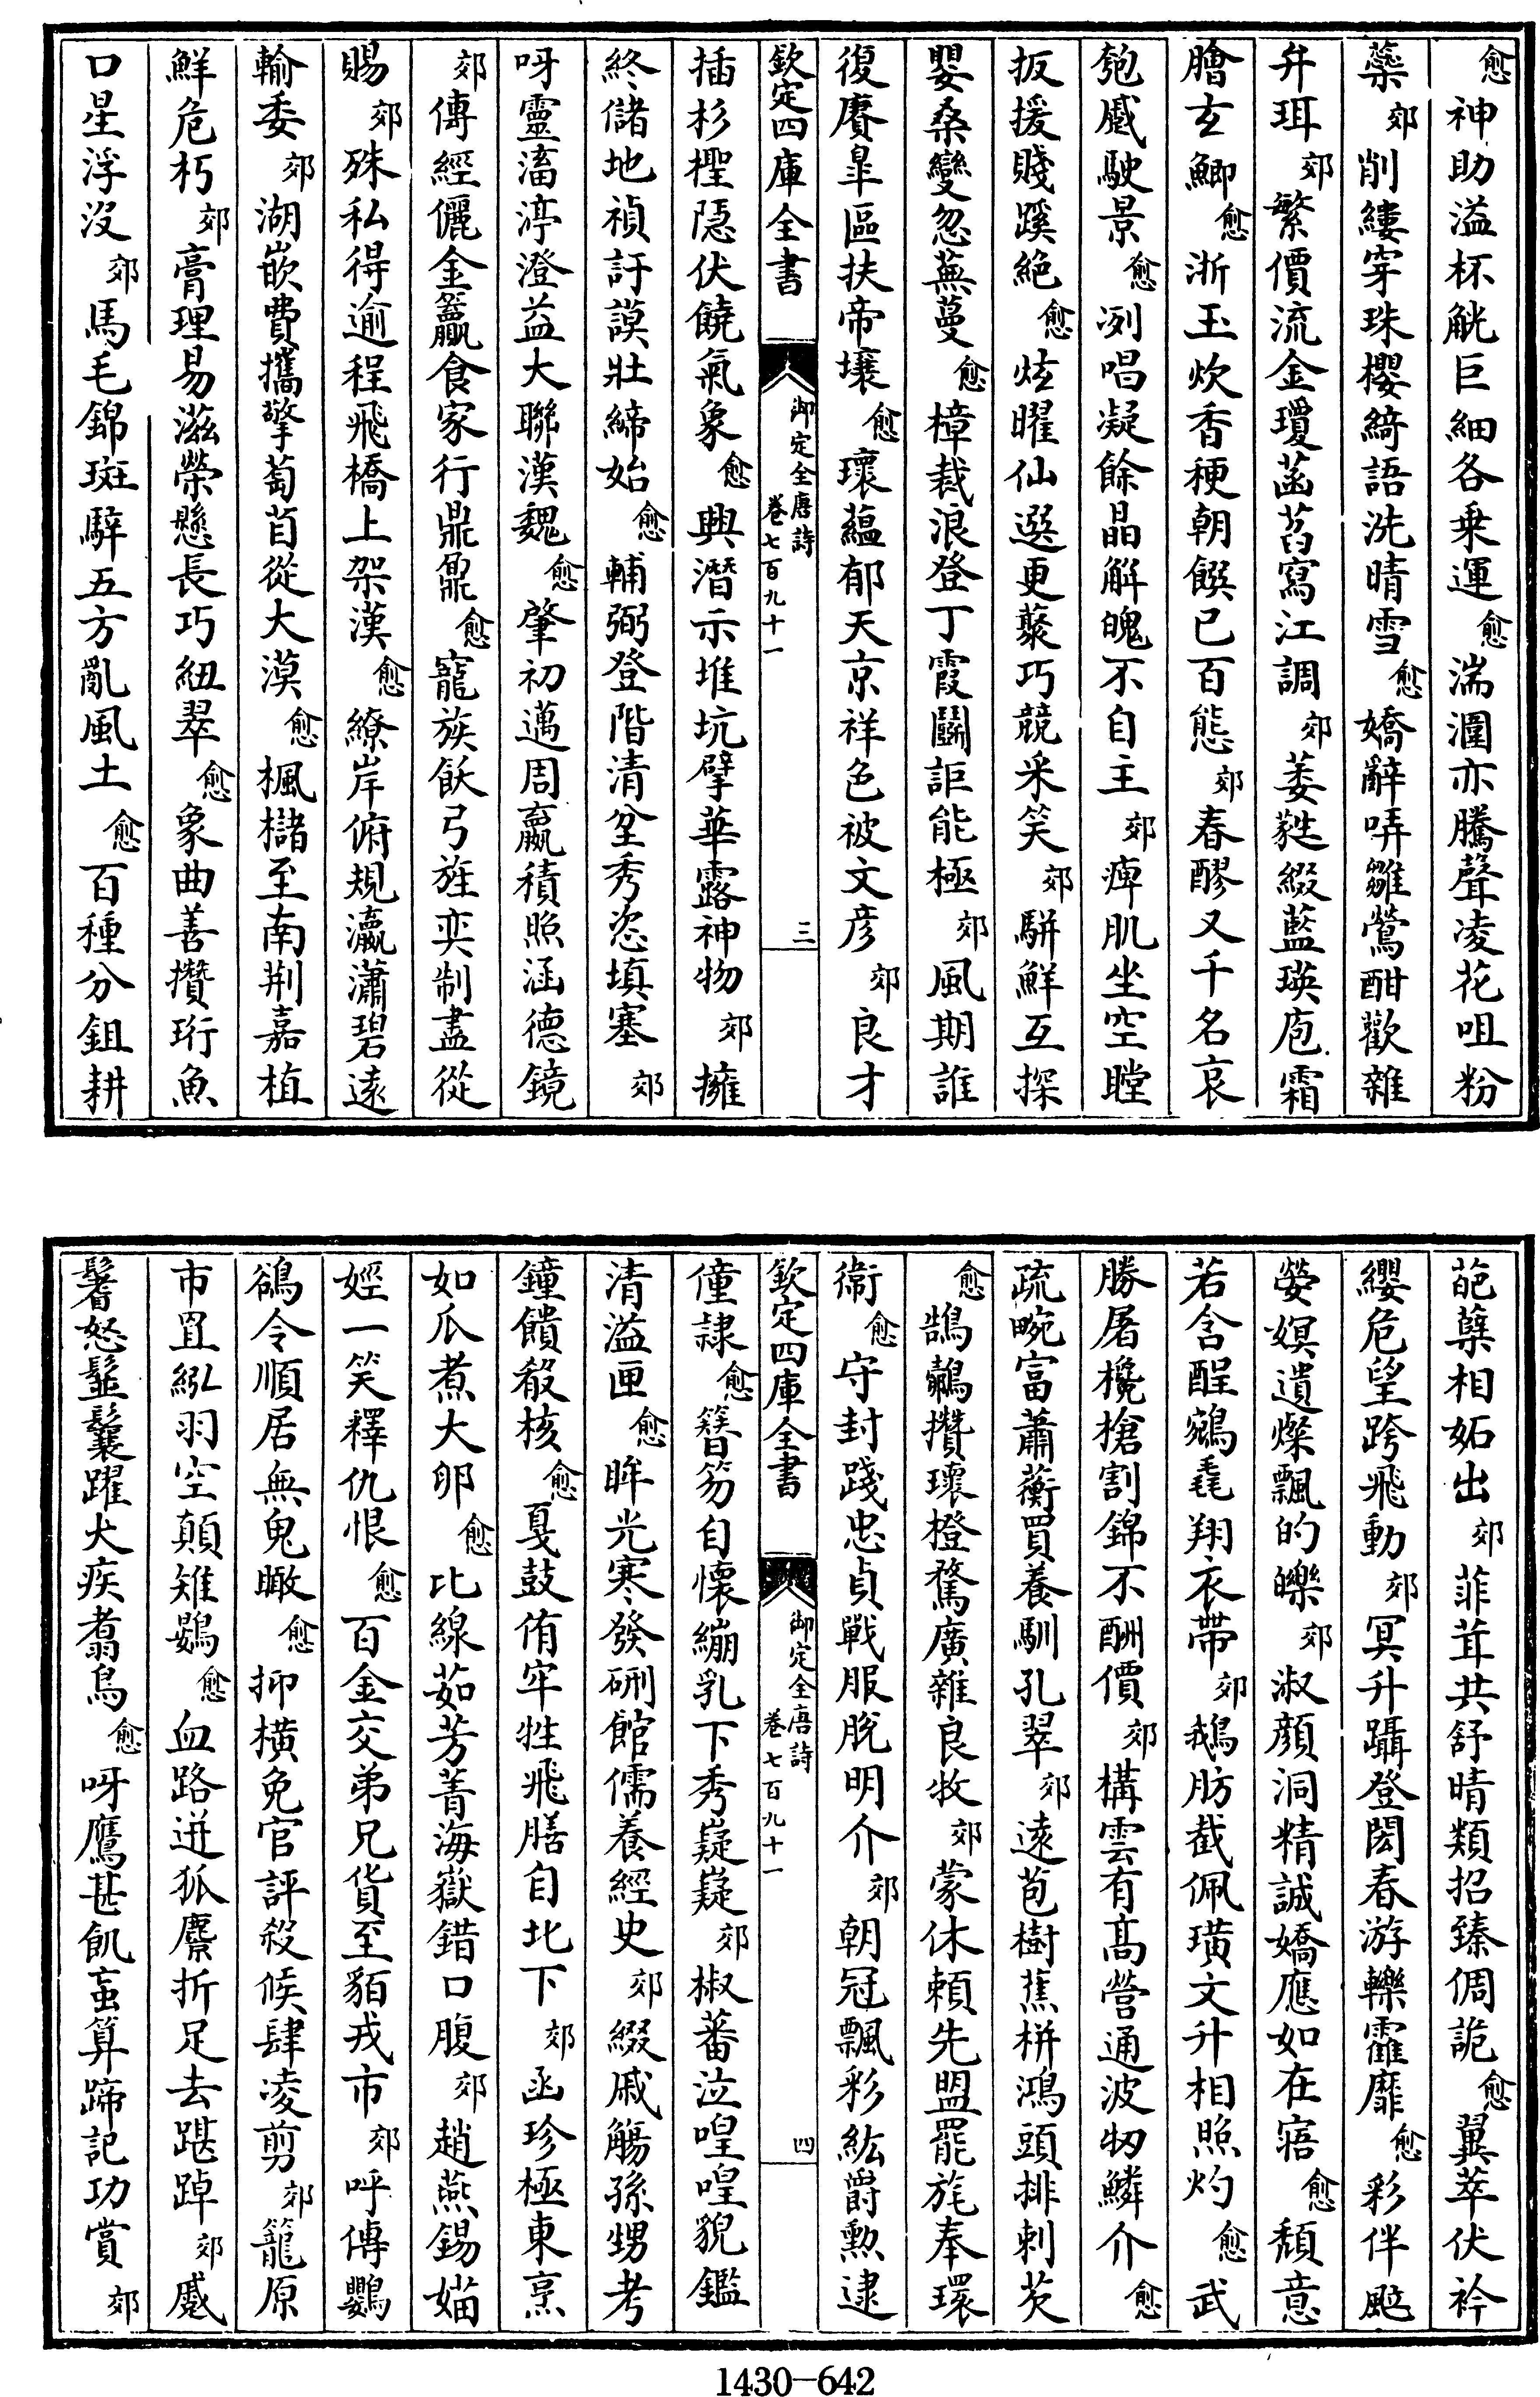 愈神助溢杯觥巨細各乗運愈湍潿亦騰聲凌花咀粉
蘂郊削縷穿珠櫻綺語洗晴雪愈嬌辭哢雛鶯酣歡雜
弁珥郊繁價流金瓊菡萏寫江調郊萎蕤綴藍瑛庖霜
膾玄鯽愈淅玉炊香粳朝饌已百態郊春醪又千名哀
匏蹙駛景愈冽唱凝餘晶解魄不自主郊痺肌坐空瞠
扳援賤蹊絶愈炫曜仙選更藂巧競采笑郊駢鮮互探
嬰桑變忽蕪蔓愈樟裁浪登丁霞鬬詎能極郊風期誰
復賡臯區扶帝壤愈瓌藴郁天京祥色被文彦郊良才
欽定四庫全書 御定全唐詩 卷七百九十一 三
插杉檉隠伏饒氣象愈興潛示堆坑擘華露神物郊擁
終儲地禎訏謨壯締始愈輔弼登階清坌秀恣填塞郊
呀靈滀渟澄益大聯漢魏愈肇初邁周嬴積照涵德鏡
郊傳經儷金籯食家行鼎鼐愈寵族飫弓旌奕制盡從
賜郊殊私得逾程飛橋上架漢愈繚岸俯規瀛瀟碧逺
輸委郊湖嵌費攜擎萄苜從大漠愈楓櫧至南荆嘉植
鮮危朽郊膏理易滋榮懸長巧紐翠愈象曲善攢珩魚
口星浮没郊馬毛錦斑騂五方亂風土愈百種分鉏耕
葩蘖相妬出郊菲茸共舒晴類招臻倜詭愈翼萃伏衿
纓危望跨飛動郊冥升躡登閎春游轢靃靡愈彩伴颭
嫈嫇遺燦飄的皪郊淑顔洞精誠嬌應如在寤愈頽意
若含酲鵷毳翔衣帶郊鵝肪截佩璜文升相照灼愈武
勝屠欃槍割錦不酬價郊構雲有髙營通波牣鱗介愈
疏畹富蕭蘅買養馴孔翠郊逺苞樹蕉栟鴻頭排刺芡
愈鵠鷇攢瓌橙騖廣雜良牧郊蒙休頼先盟罷旄奉環
衞愈守封踐忠貞戰服脫明介郊朝冠飄彩紘爵勲逮
欽定四庫全書 御定全唐詩 卷七百九十一 四
僮隷愈簪笏自懐繃乳下秀嶷嶷郊椒蕃泣喤喤貌鑑
清溢匣愈眸光寒發硎館儒養經史郊綴戚觴孫甥考
鐘饋殽核愈戛鼓侑牢牲飛膳自北下郊函珍極東烹
如瓜煮大卵愈比線茹芳菁海嶽錯口腹郊趙燕錫媌
娙一笑釋仇恨愈百金交弟兄貨至貊戎市郊呼傳鸚
鵒令順居無鬼瞰愈抑橫免官評殺候肆凌剪郊籠原
市罝紭羽空顛雉鷃愈血路迸狐麖折足去踸踔郊蹙
鬐怒䰄鬤躍犬疾翥鳥愈呀鷹甚飢䖟算蹄記功賞郊
1430-642